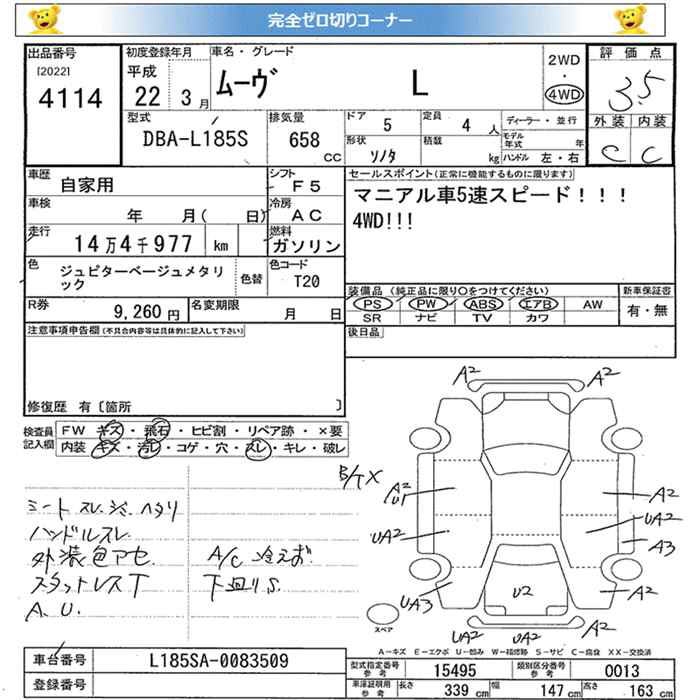 完全ゼロ切りコーナー
出品番号 初度登録年月 車名・グレード 評価点
[2022] 平成 ムーヴ L 2WD
4114 22 3月 ・ 4WD 3.5
型式 排気量 ドア 5 定員 4 人 ディーラー・並行 外装 内装
DBA-L185S 658 CC 形状 ソノタ 積載 kg モデル年式 年 C C
ハンドル 左・右
車歴 自家用 シフト F5 セールスポイント(正常に機能するものに限ります)
車検 年 月( 日) 冷房 AC マニアル車5速スピード!!!
走行 14万4千977 km 燃料 ガソリン 4WD!!!
色 ジュピターベージュメタリック 色替 色コード T20
装備品 (純正品に限り○をつけてください) 新車保証書
R券 9,260円 名変期限 月 日 PS PW ABS エアB AW 有・無
SR ナビ TV カワ
注意事項申告欄(不具合内容等は具体的に記入して下さい) 後日品
修復歴 有〔箇所 〕
検査員記入欄 FW キズ・飛石・ヒビ割・リペア跡・×要
内装 キズ・汚レ・コゲ・穴・スレ・キレ・破レ
B/T X
シート スレ シミ ヘタリ
ハンドルスレ
外装色アセ A/C 冷えず
スタットレスT 下回りS.
A.U.
A2 A2
A2 U1 A2
UA2 UA2
A3
UA3 U2 A2
スペア UA2 UA2
A-キズ E-エクボ U-凹み W-補修跡 S-サビ C-腐食 XX-交換済
車台番号 L185SA-0083509
登録番号
型式指定番号 参考 15495 類別区分番号 参考 0013
車庫証明用 参考 長さ 339 cm 幅 147 cm 高さ 163 cm